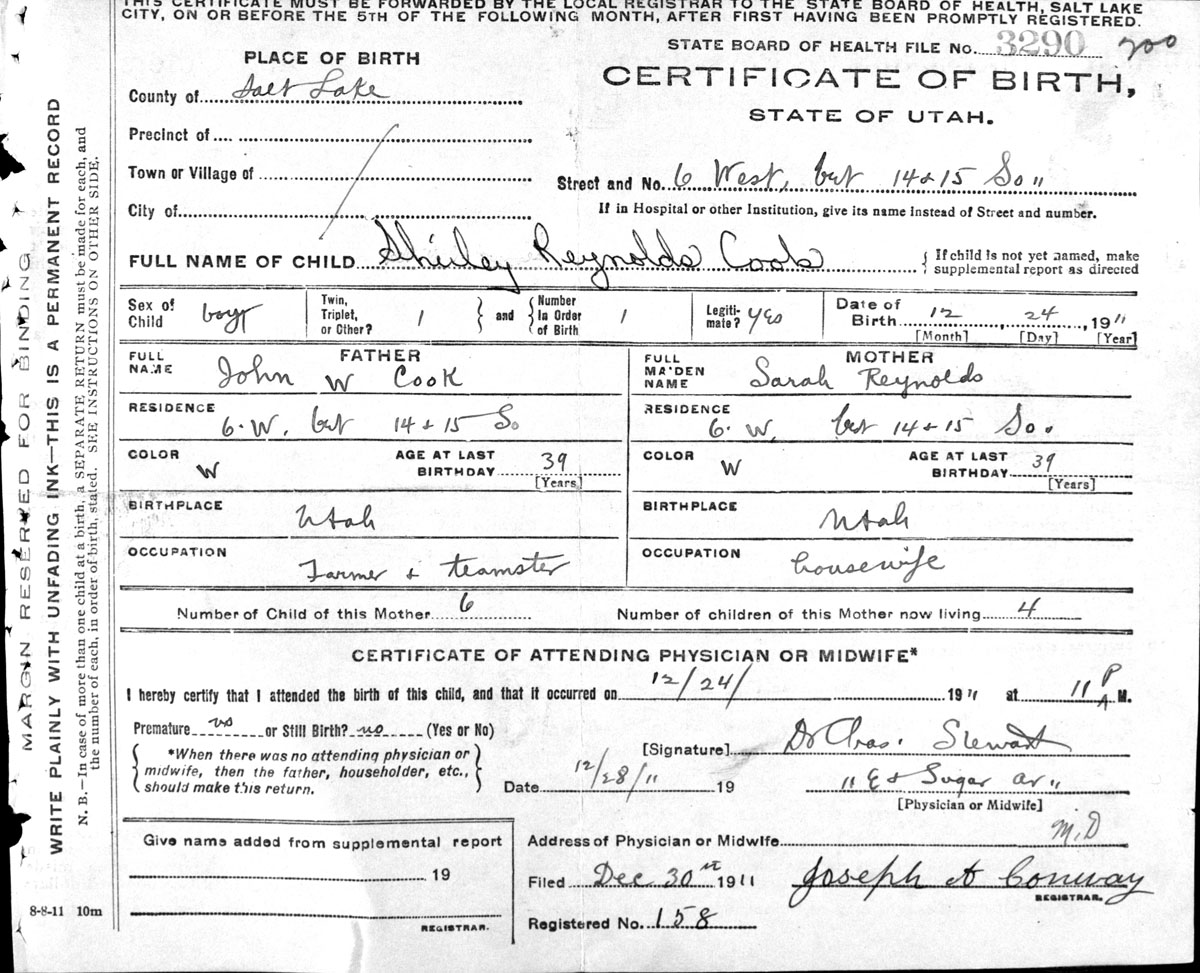 THIS CERTIFICATE MUST BE FORWARDED BY THE LOCAL REGISTRAR TO THE STATE BOARD OF HEALTH, SALT LAKE
CITY, ON OR BEFORE THE 5TH OF THE FOLLOWING MONTH, AFTER FIRST HAVING BEEN PROMPTLY REGISTERED.
STATE BOARD OF HEALTH FILE No. 3290 200
PLACE OF BIRTH
CERTIFICATE OF BIRTH,
STATE OF UTAH.
County of Salt Lake
Precinct of
Town or Village of
Street and No. 6 West, bet 14 & 15 So "
City of
If in Hospital or other Institution, give its name instead of Street and number.
FULL NAME OF CHILD Shirley Reynolds Cook
{ If child is not yet named, make
supplemental report as directed
Sex of Child boy
Twin, Triplet, or Other? 1
and
Number in Order of Birth 1
Legiti-mate? yes
Date of Birth 12, 24, 1911
[Month] [Day] [Year]
FATHER
FULL NAME John W Cook
MOTHER
FULL MAIDEN NAME Sarah Reynolds
RESIDENCE 6. W. bet 14 & 15 So
RESIDENCE 6. W. bet 14 & 15 So.
COLOR W AGE AT LAST BIRTHDAY 39 [Years]
COLOR W AGE AT LAST BIRTHDAY 39 [Years]
BIRTHPLACE Utah
BIRTHPLACE Utah
OCCUPATION Farmer & teamster
OCCUPATION housewife
Number of Child of this Mother 6
Number of children of this Mother now living 4
CERTIFICATE OF ATTENDING PHYSICIAN OR MIDWIFE*
I hereby certify that I attended the birth of this child, and that it occurred on 12/24/ 1911 at 11 P A M.
Premature no or Still Birth? no (Yes or No)
*When there was no attending physician or
midwife, then the father, householder, etc.,
should make this return.
[Signature] Dr Chas. Stewart
Date 12/28/11 19
" E & Sugar av "
[Physician or Midwife]
M.D
Give name added from supplemental report
19
REGISTRAR.
Address of Physician or Midwife
Filed Dec 30st 1911 Joseph A Conway
REGISTRAR.
Registered No. 158
8-8-11 10m
MARGIN RESERVED FOR BINDING
WRITE PLAINLY WITH UNFADING INK—THIS IS A PERMANENT RECORD
N. B.—In case of more than one child at a birth, a SEPARATE RETURN must be made for each, and
the number of each, in order of birth, stated. SEE INSTRUCTIONS ON OTHER SIDE.